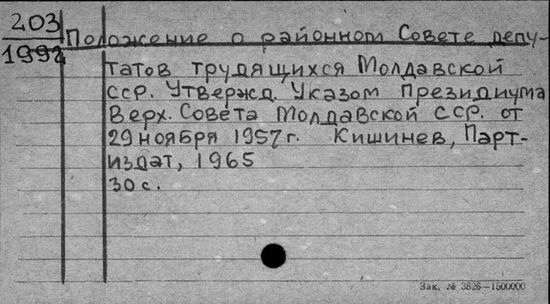 203
1992
Положение о районном Совете депу-
татов трудящихся Молдавской
ССР. Утвержд. Указом Президиума
Верх. Совета Молдавской ССР. от
29 ноября 1957 г. Кишинев, Парт-
издат, 1965
30 с.
Зак. № 3826—1500000